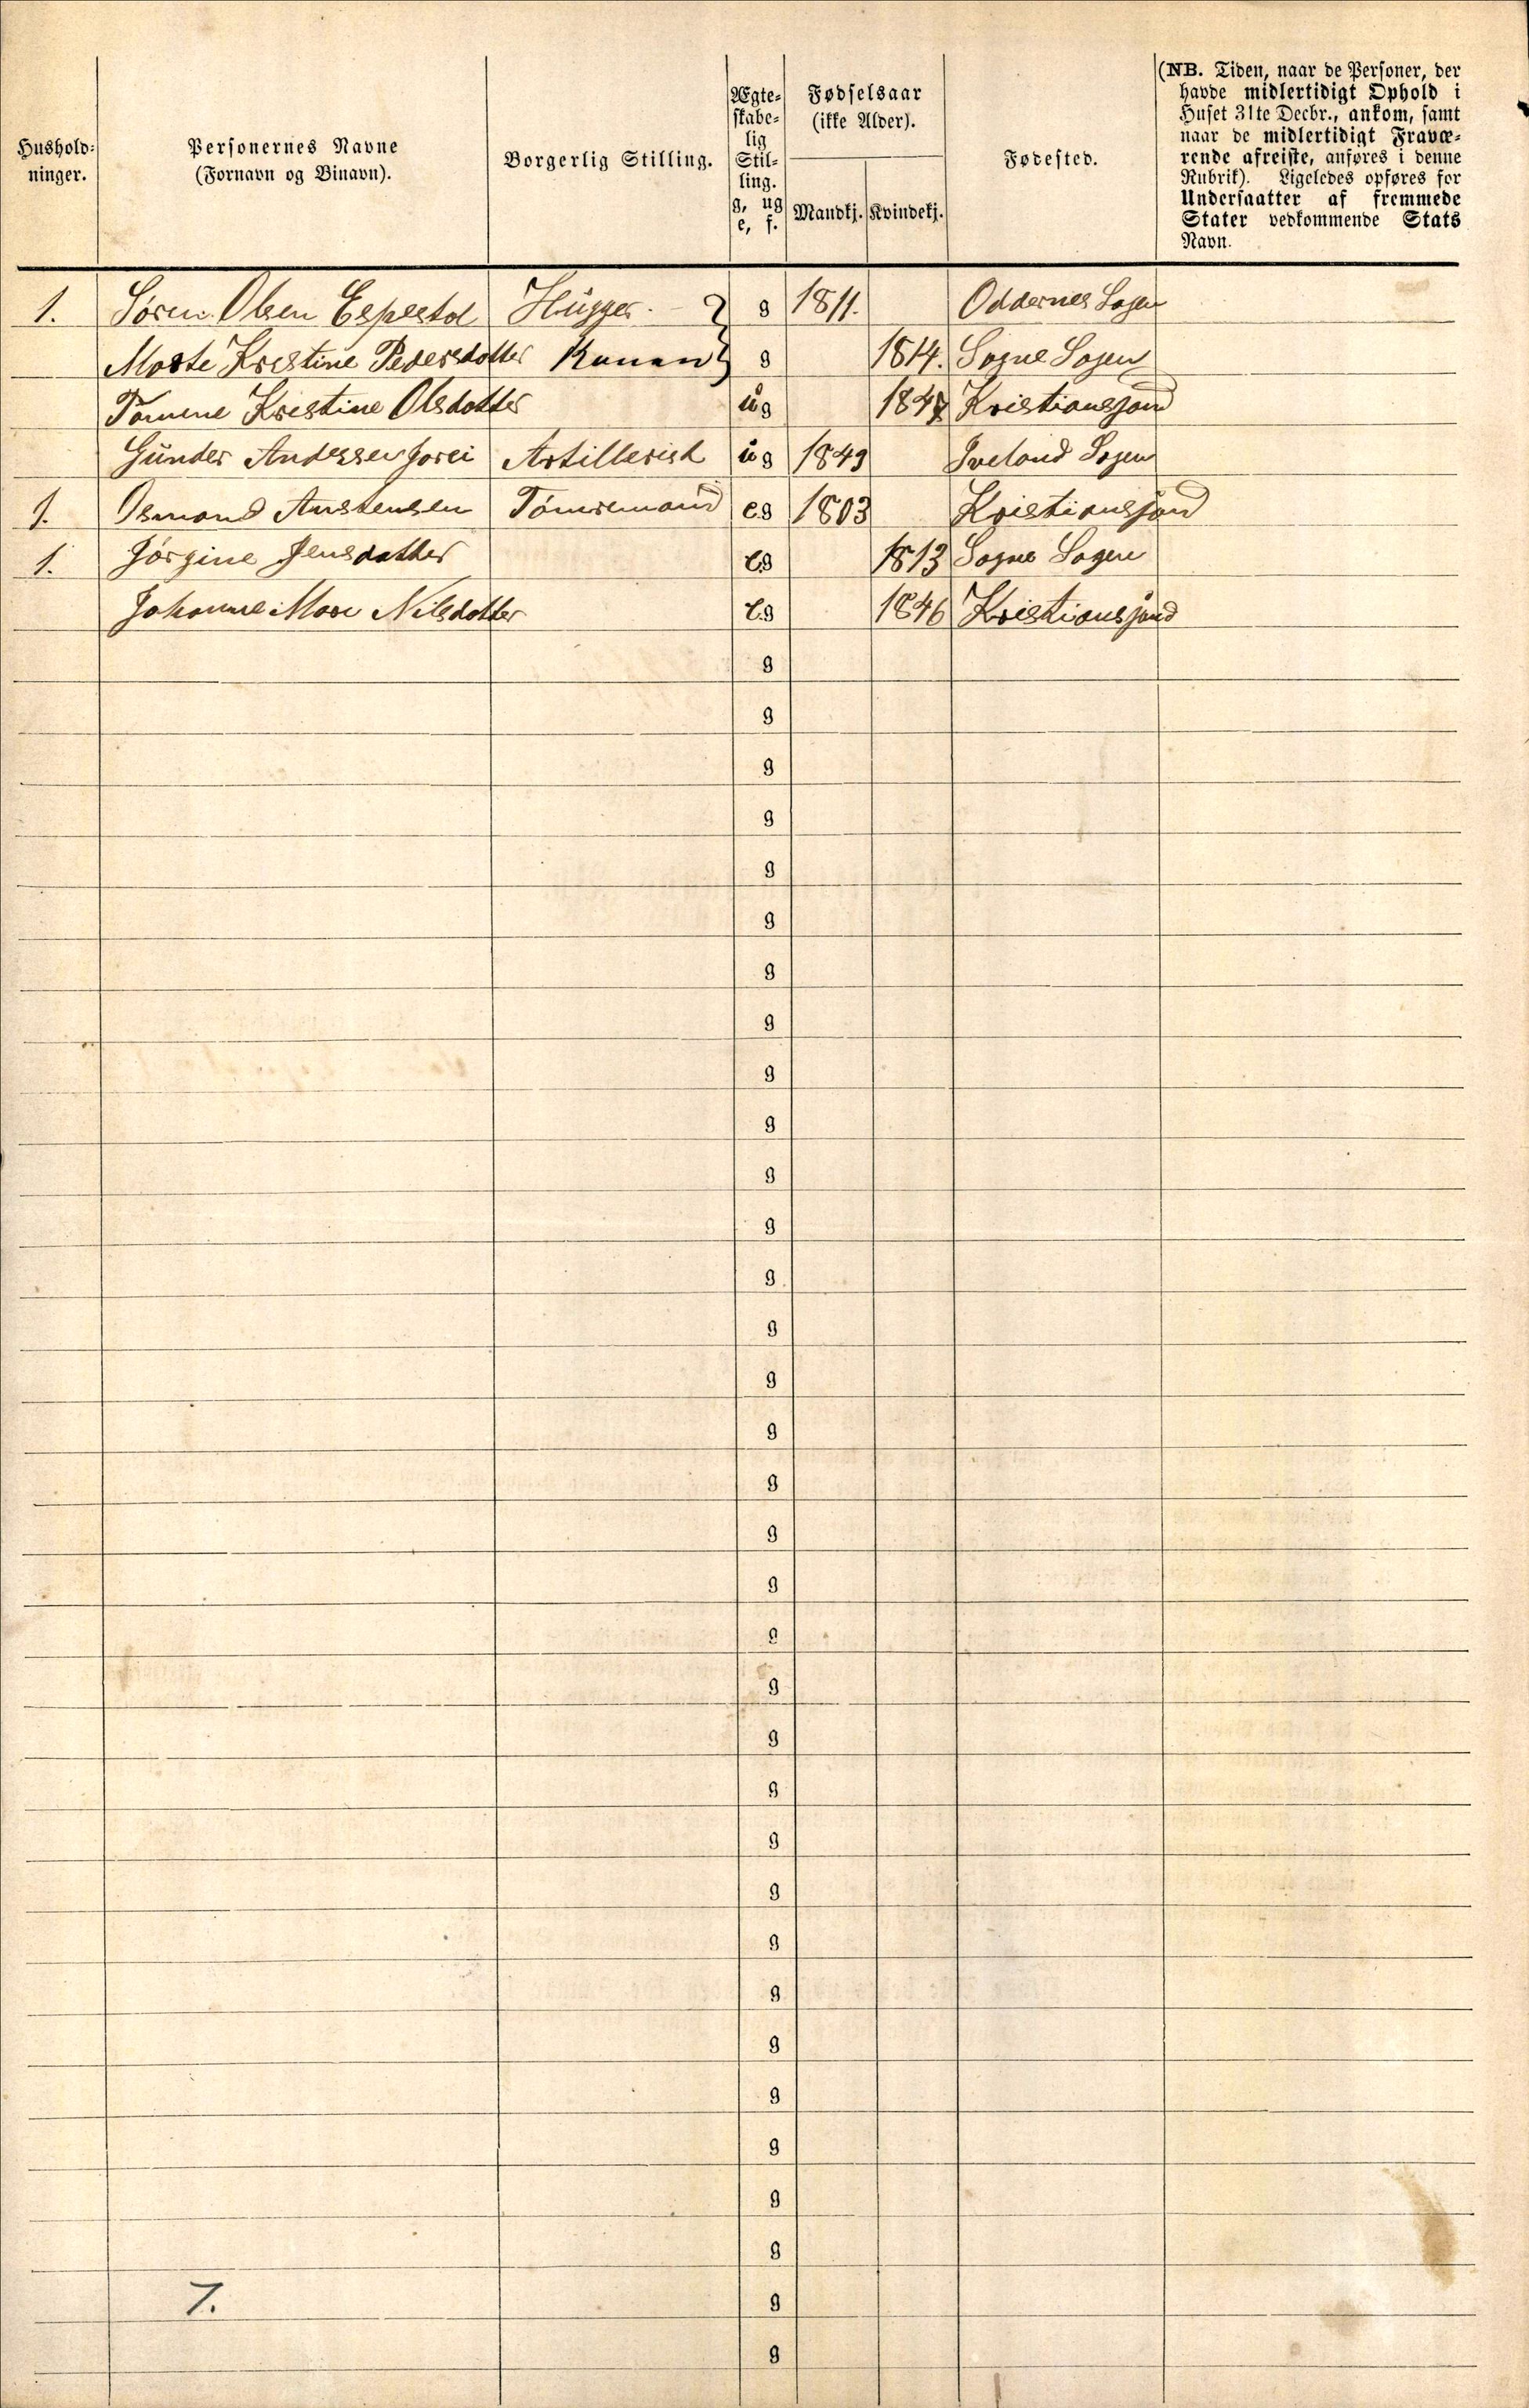 Hushold-
ninger.
Personernes Navne
(Fornavn og Binavn).
Borgerlig Stilling.
Ægte-
skabe-
lig
Stil-
ling.
g, ug
e, f.
Fødselsaar
(ikke Alder).
Mandkj. Kvindekj.
Fødested.
(NB. Tiden, naar de Personer, der
havde midlertidigt Ophold i
Huset 31te Decbr., ankom, samt
naar de midlertidigt Fravæ-
rende afreiste, anføres i denne
Rubrik). Ligeledes opføres for
Undersaatter af fremmede
Stater vedkommende Stats
Navn.
1. Søren Olsen Espestøl Hugger. g 1811. Oddernes Sogen
Marte Kristine Pedersdotter Konen g 1814. Sogne Sogen
Tomine Kristine Olsdotter ug 1847 Kristianssand
Gunder Anderssen ug Artillerist 1849 Iveland Sogen
1. Osmond Anstensen Tømremand eg 1803 Kristianssand
1. Jørgine Jensdatter eg 1813 Sogne Sogen
Johanne Mare Nilsdotter eg 1846 Kristianssand
g
g
g
g
g
g
g
g
g
g
g
g
g
g
g
g
g
g
g
g
g
g
g
g
g
g
g
g
g
g
g
g
7. g
g